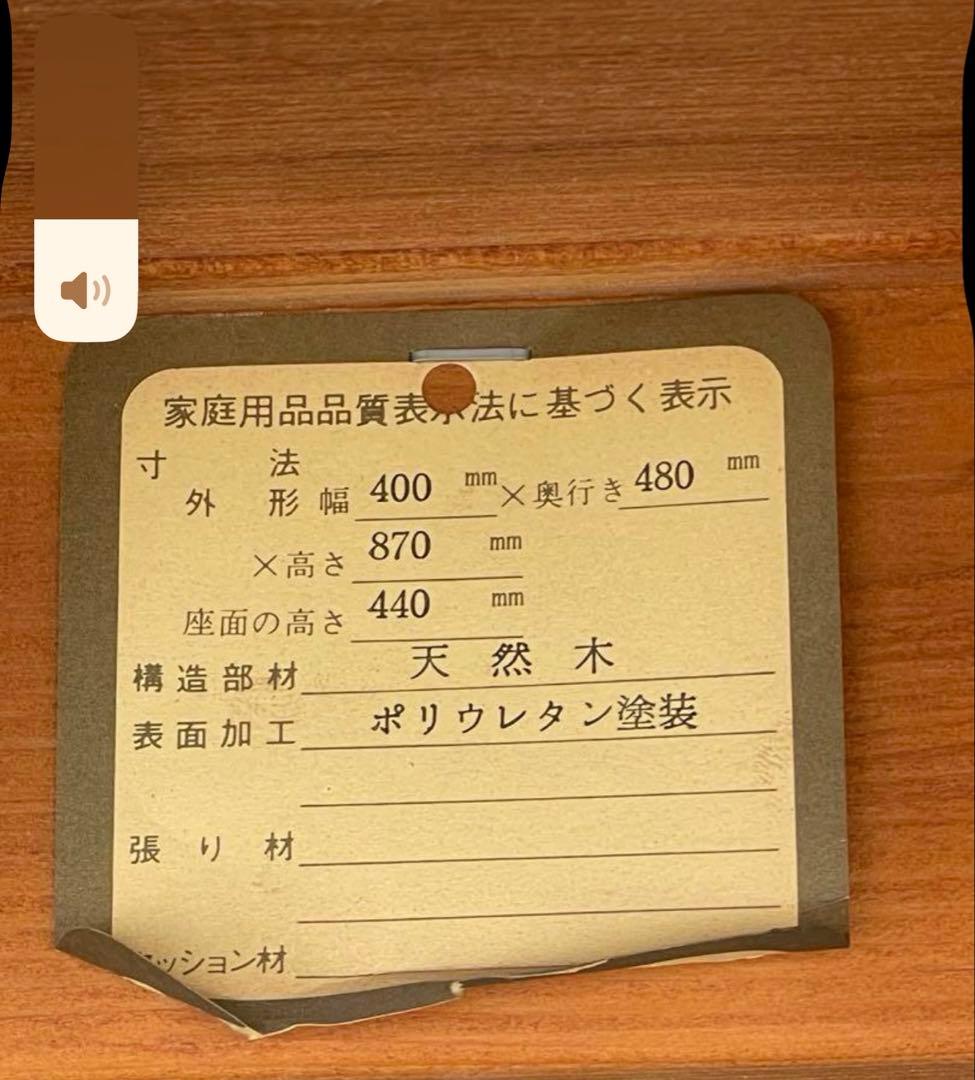 家庭用品品質表示法に基づく表示
寸法
外形幅 400 mm ×奥行き 480 mm
×高さ 870 mm
座面の高さ 440 mm
構造部材 天然木
表面加工 ポリウレタン塗装
張り材
クッション材